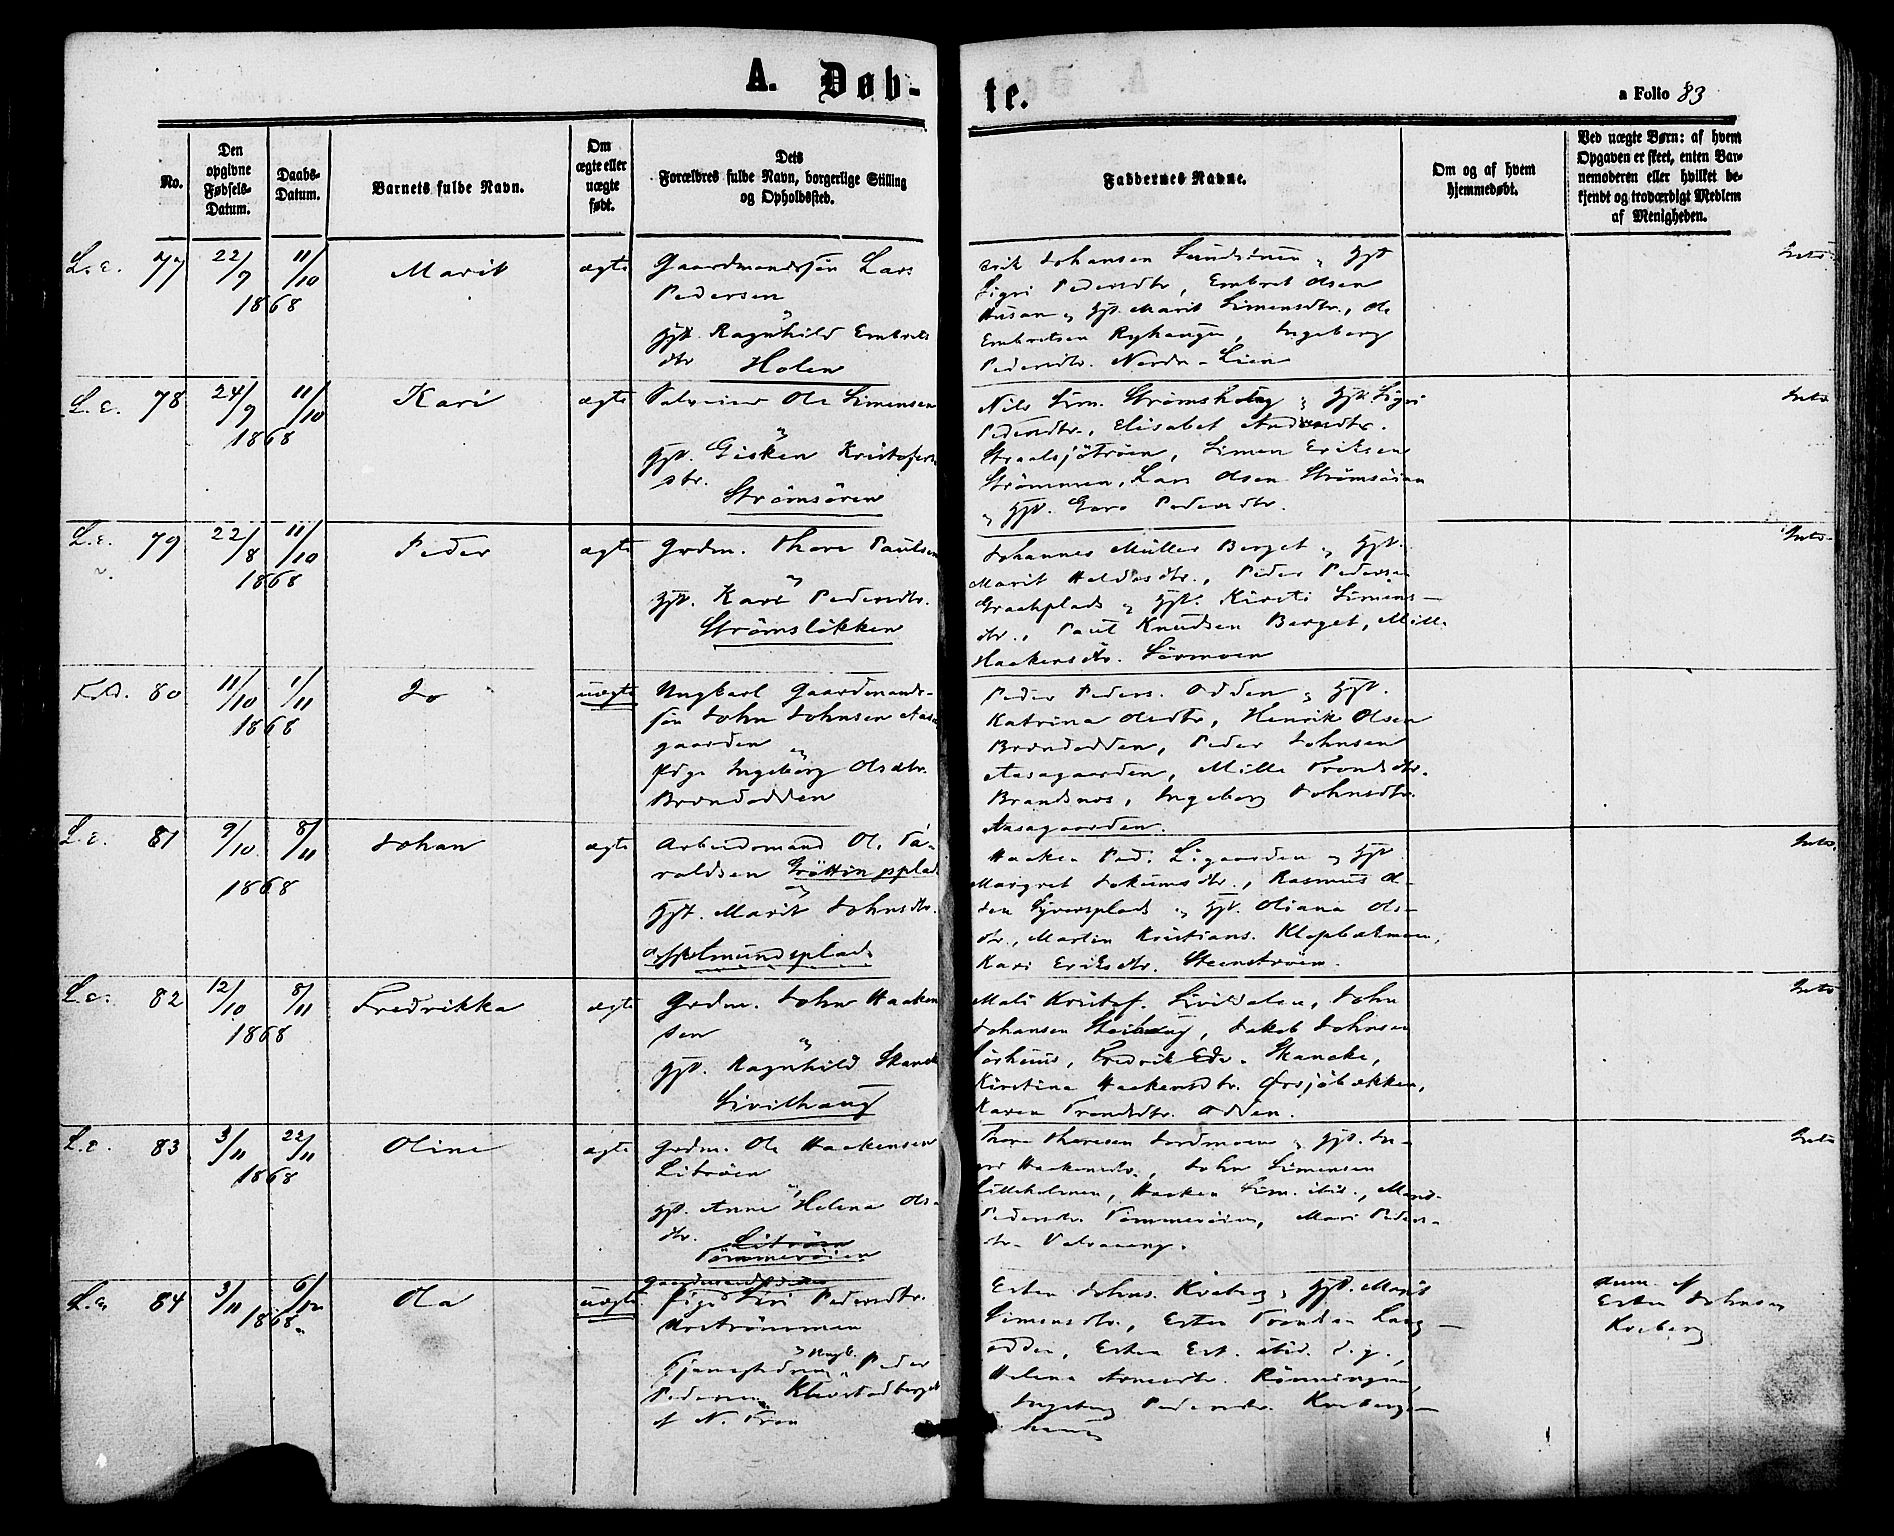 A. Døb-
te.
a Folio 83
No.
Den
opgivne
Fødsels-
Datum.
Daabs-
Datum.
Barnets fulde Navn.
Om
ægte eller
uægte
født.
Dets
Forældres fulde Navn, borgerlige Stilling
og Opholdssted.
Faddernes Navne.
Om og af hvem
hjemmedøbt.
Ved uægte Børn: af hvem
Opgaven er skeet, enten Bar-
nemoderen eller hvilket be-
kjendt og troværdigt Medlem
af Menigheden.
L.c. 77 22/9 11/10 1868 Marit ægte
Gaardmandssøn Lars
Pedersen
og
Hst. Ragnhild Embrets
dtr Holen
Erik Johansen
Sigri Pedersdtr, Embret Olsen
Husan og Hst. Marit Simensdtr., Ole
Embretsen Ryhaugen, Ingeborg
Pedersdtr. Nordre-Lien
L.c. 78 24/9 11/10 1868 Kari ægte
Ole Simensen
og
Hst. Gisken Kristofers
dtr.
Strømsören
Nils Sim. Strømshaug og Hst. Sigri
Pedersdtr., Elisabet Andersdtr.
Straalsjötröen, Simen Eriksen
Strømmen, Lars Olsen Strømsören
og Hst. Goro Pedersdtr.
L.c. 79 22/8 11/10 1868 Peder ægte
Grdm. Thore Paulsen
og
Hst. Kari Pedersdtr.
Strømsløkken
Johannes Müller Berget og Hst.
Marit Haldosdtr., Peder Pedersen
Graahplads og Hst. Kirsti Simens-
dtr., Paul Knudsen Berget, Mille
Haakensdtr. Sörmoen
80 11/10 1/11 1868 Jo uægte
Ungkarl Gaardmands-
søn John Johnsen Aasa
gaarden
og
Pige Ingeborg Olsdtr.
Brændodden
Peder Peders. Odden og Hst.
Katrina Olsdtr, Henrik Olsen
Brændodden, Peder Johnsen
Aasagaarden, Mille Trondsdtr.
Brandsnes, Ingeborg Johnsdtr.
Aasagaarden.
L.c. 81 9/10 8/11 1868 Johan ægte
Arbeidsmand Ole Ta-
raldsen Grøttingsplads
og
Hst. Marit Johnsdtr.
Haaken Ped. Ligaarden og Hst.
Margret Jokumsdtr., Rasmus
Syversplads og Hst. Oliana Ols-
dtr., Martin Kristians. Klopbakmoen,
Kari Eriksdtr. Steenstrøen.
L.c. 82 12/10 8/11 1868 Fredrikka ægte
Grdm. John Haaken
sen
og
Hst. Ragnhild Skancke
Sivilhaug
Mali Kristof. Sivildalen, John
Johansen Steihaug, Jakob Johnsen
Sørhuus, Fredrik Edv. Skancke,
Kirstina Haakensdtr. Ørsjöbækken,
Karen Trondsdtr. Odden.
L.c. 83 3/11 22/11 1868 Oline ægte
Grdm. Ole Haakensen
Litröen
og
Hst. Anne Helena Ols-
dtr. Litröen
Tömmeröien
Thore Thoresen Jordmoen og Hst. In-
Haakensdtr., John Simensen
Lilleholmen, Haaken Sim. ibid.,
Pedersdtr. Tömmeröien, Mari Peders-
dtr.
84 3/11 6/12 1868 Ola uægte
Pige Siri Pedersdtr.
og Ungk.
Tjenestedreng Peder
Pedersen
Esten Johns. Kveberg og Hst. Marit
Simensdtr., Esten Trondsen Lang-
odden, Esten Est. ibid. d.y.,
Helena Arnesdtr. Rönningen,
Ingeborg Pedersdtr. Kveberg-
haug
Anm. af
Esten Johnsen
Kveberg